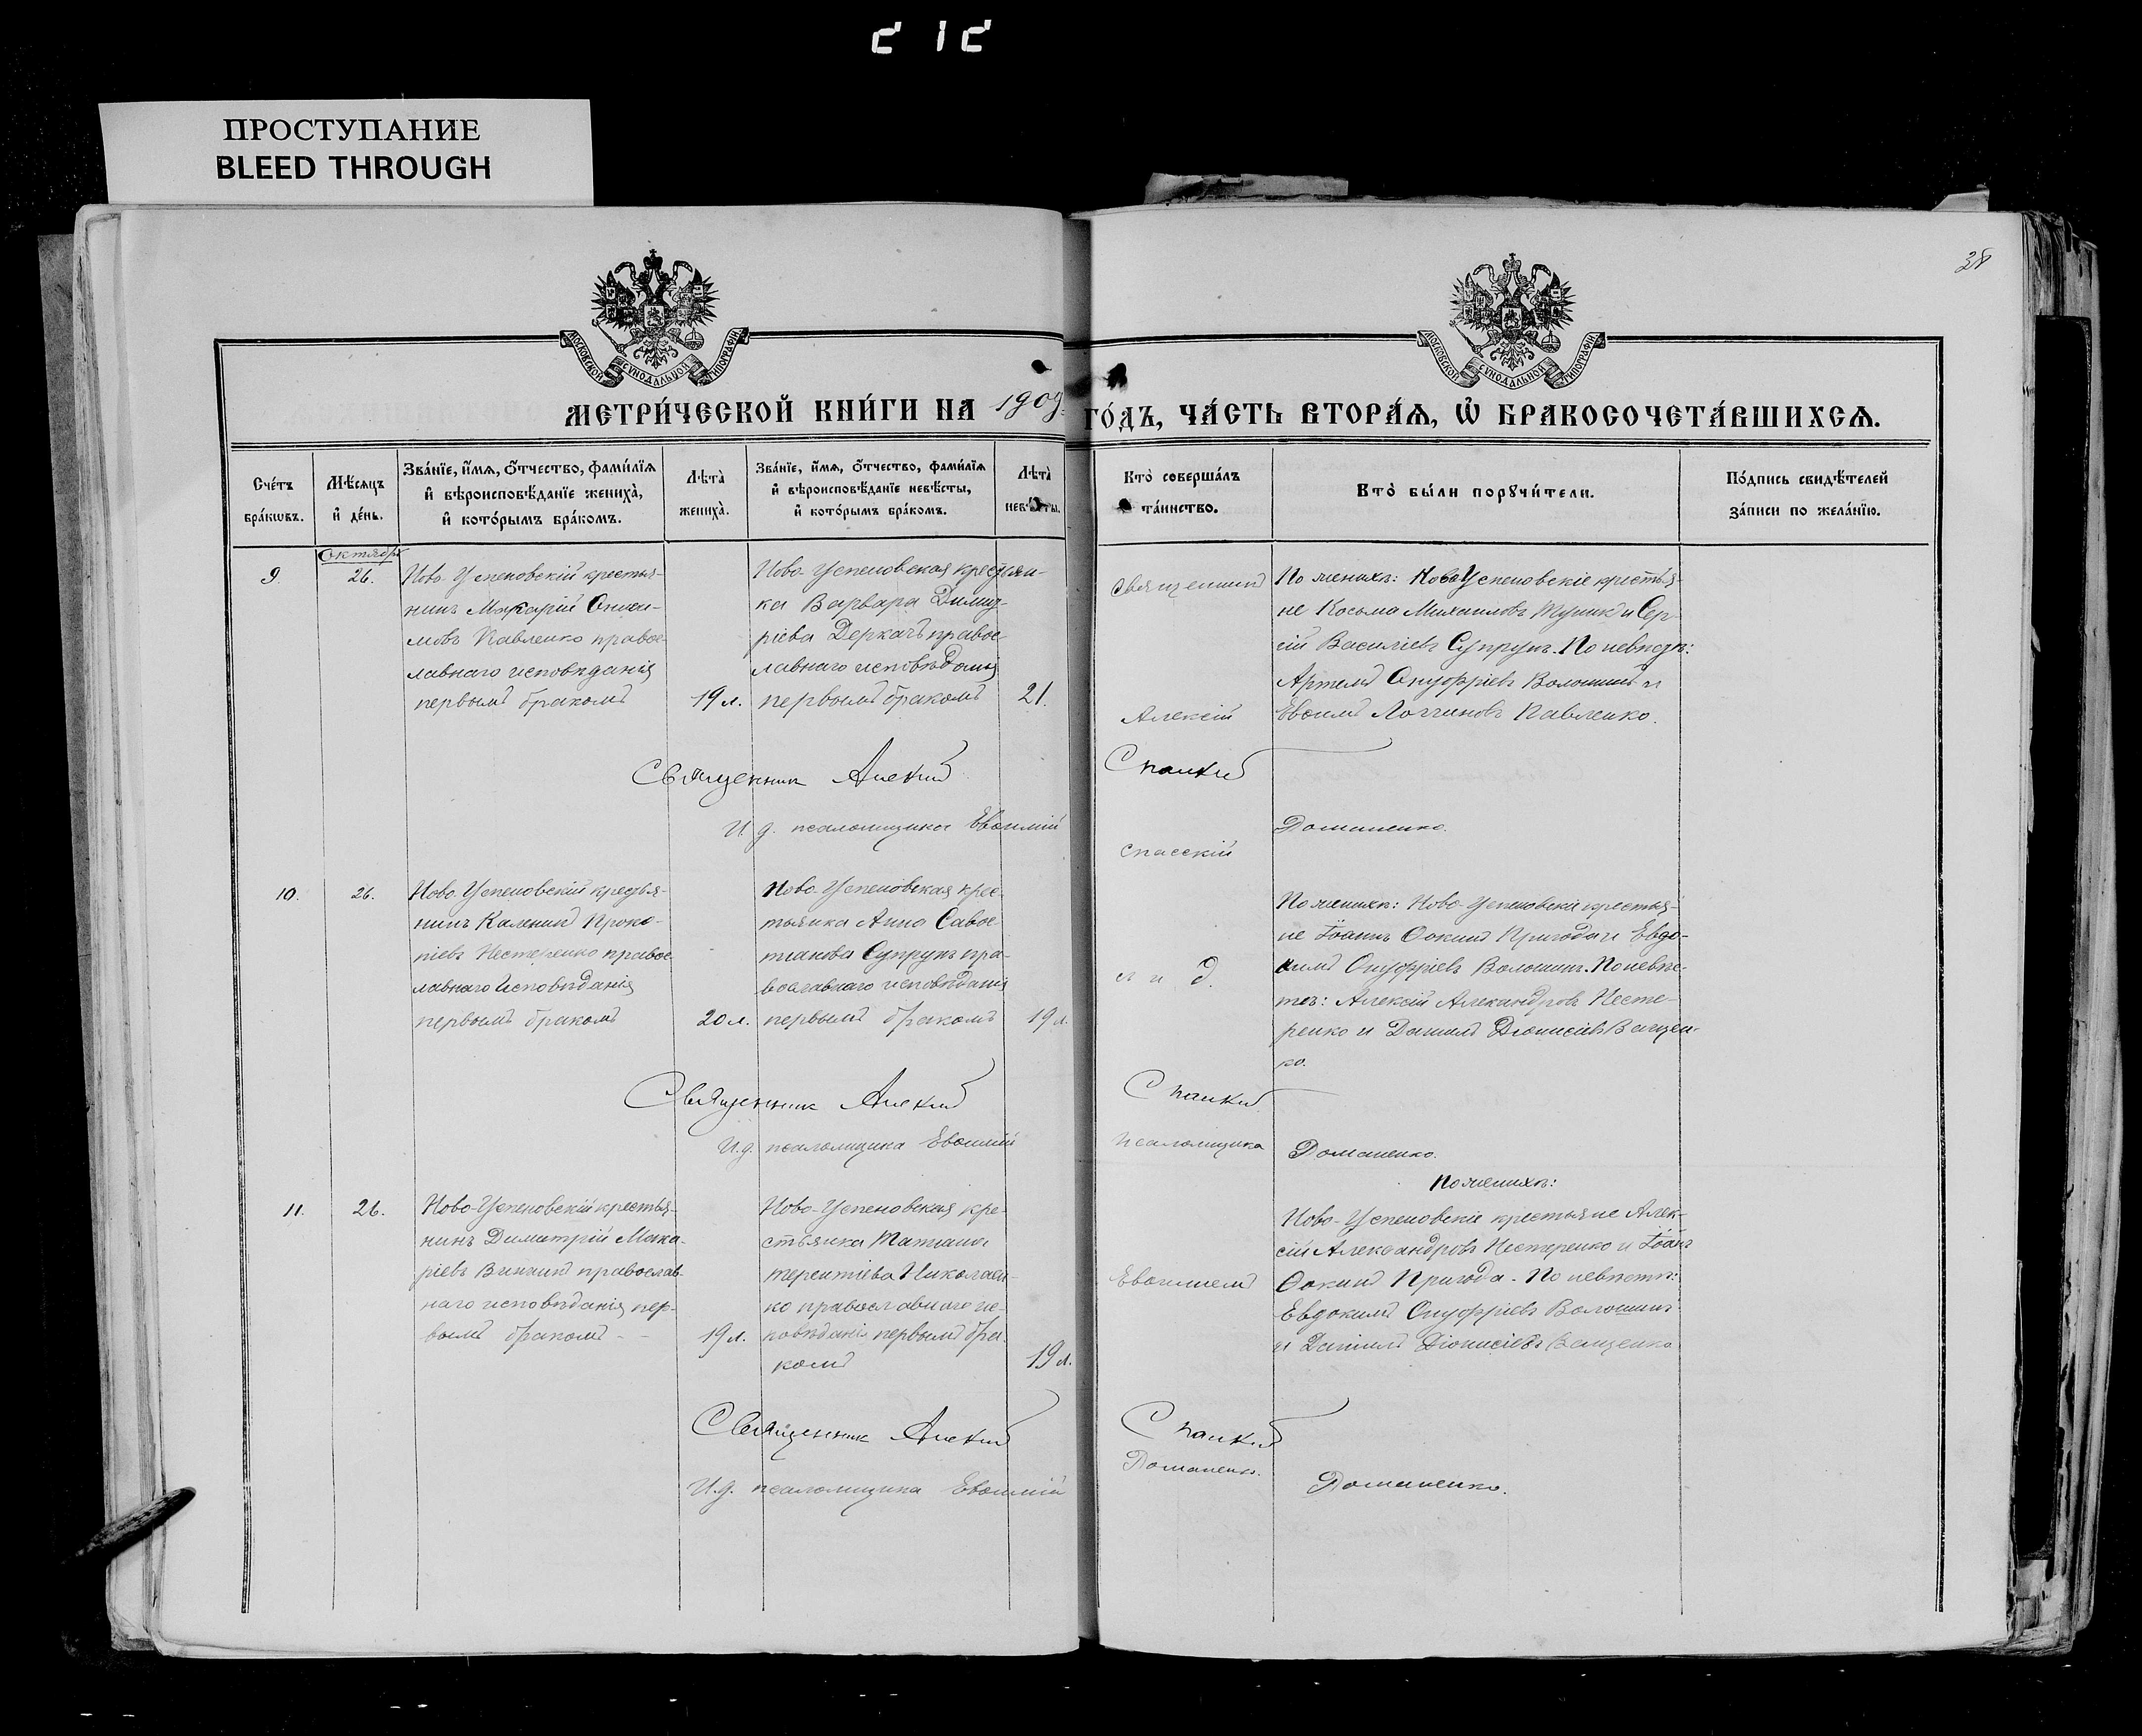 212
ПРОСТУПАНИЕ
BLEED THROUGH
38
МОСКОВСКОЙ СѴНОДАЛЬНОЙ ТИПОГРАФІИ
МОСКОВСКОЙ СѴНОДАЛЬНОЙ ТИПОГРАФІИ
МЕТРИ́ЧЕСКОЙ КНИ́ГИ НА 1909 ГО́ДЪ, ЧА́СТЬ ВТОРА́Ѧ, Ѡ҆ БРАКОСОЧЕТА́ВШИХСѦ.
Сче́тъ
бра́кѡвъ.
Мѣ́сѧцъ
и҆ де́нь.
Зва́нїе, и҆́мѧ, ѻ҆́тчество, фами́лїѧ
и҆ вѣроисповѣ́данїе жениха̀,
и҆ кото́рымъ бра́комъ.
Лѣта̀
жениха̀.
Зва́нїе, и҆́мѧ, ѻ҆́тчество, фами́лїѧ
и҆ вѣроисповѣ́данїе невѣ́сты,
и҆ кото́рымъ бра́комъ.
Лѣта̀
невѣ́сты.
Кто̀ соверша́лъ
та́инство.
Кто̀ бы́ли порꙋчи́тели.
По́дпись свидѣ́телей
за́писи по жела́нїю.
Октября
9.
26.
Ново-Успеновскій крестья-
нинъ Макарій Ониси-
мовъ Павленко правос
лавнаго исповѣданія
первымъ бракомъ
19 л.
Ново-Успеновская крестьян-
ка Варвара Димит-
ріева Деркачъ правос
лавнаго исповѣданія
первымъ бракомъ
21.
Священникъ
Алексій
По женихѣ: Ново Успеновскіе крестья-
не Косьма Михаиловъ Тупикъ и Сер-
гій Василіевъ Супрунъ. По невѣстѣ:
Артемъ Онуфріевъ Волошинъ и
Евѳимъ Логгиновъ Павленко.
Священник Алексий Спаский
И. д. псаломщика Евѳимій Доманенко.
Спасскій
10.
26.
Ново-Успеновскій крестья-
нинъ Каленикъ Проко-
піевъ Нестеренко правос
лавнаго исповѣданія
первымъ бракомъ
20 л.
Ново-Успеновская крес-
тьянка Анна Савос-
тианова Супрунъ пра-
вославнаго исповѣданія
первымъ бракомъ
19 л.
с и д.
По женихѣ: Ново-Успеновскіе крестья-
не Іоаннъ Ѳокинъ Пригода и Евдо-
кимъ Онуфріевъ Волошинъ. По невѣс-
тѣ: Алексій Александровъ Несте-
ренко и Даниилъ Діонисіевъ Ващен-
ко.
Священник Алексий Спаский
И.д. псаломщика Евѳимій Доманенко.
псаломщика
11.
26.
Ново-Успеновскій крестья-
нинъ Димитрій Мака-
ріевъ Винникъ православ-
наго исповѣданія пер-
вымъ бракомъ - -
19 л.
Ново-Успеновская кре-
стьянка Татіана
терентіева Николаен-
ко православнаго ис-
повѣданія первымъ бра-
комъ
19 л.
Евѳиміемъ
По женихѣ:
Ново-Успеновскіе крестьяне Алек-
сій Александровъ Нестеренко и Іоаннъ
Ѳокинъ Пригода. По невѣстѣ:
Евдокимъ Онуфріевъ Волошинъ
и Даниилъ Діонисіевъ Ващенко
Священник Алексий Спаский
Доманенко.
И.д. псаломщика Евѳимій Доманенко.